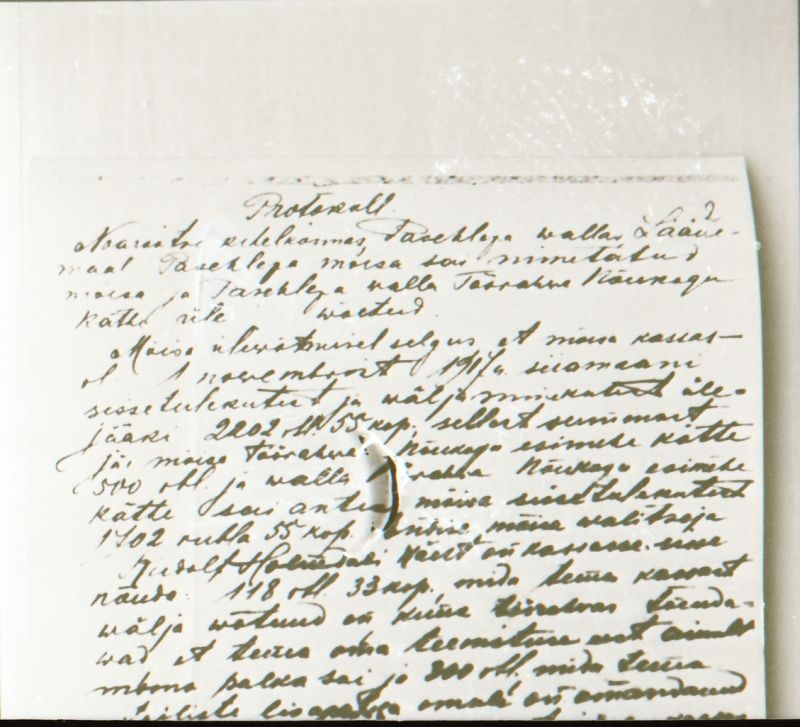 Protokoll.
2
Noarootsi kihelkonnas, Paschlepa wallas Lääne-
maal Paschlepa mõisa sai nimetatud
mõisa ja Paschlepa walla Töörahwa Nõukogu
kätte üle woetud.
Mõisa ülewõtmisel selgus, et mõisa kassas
ol 1 nowembrist 1917 a. siiamaani
sissetulekutest ja wäljaminekutest üle-
jääki 2202 rbl. 55 kop, sellest summast
jäi mõisa Töörahwa Nõukogu esimehe kätte
500 rbl. ja walla Töörahwa Nõukogu esimehe
kätte sai antud mõisa sissetulekutest
1702 rubla 55 kop. mõisa walitseja
Rudolf käest on kassasse
nõuda 118 rbl. 33 kop, mida tema kassast
wälja wõtnud on kuna töörahwas tõenda-
wad et tema oma teenistuse eest ainult
palka sai ja 300 rbl. mida tema
omale on omandanud